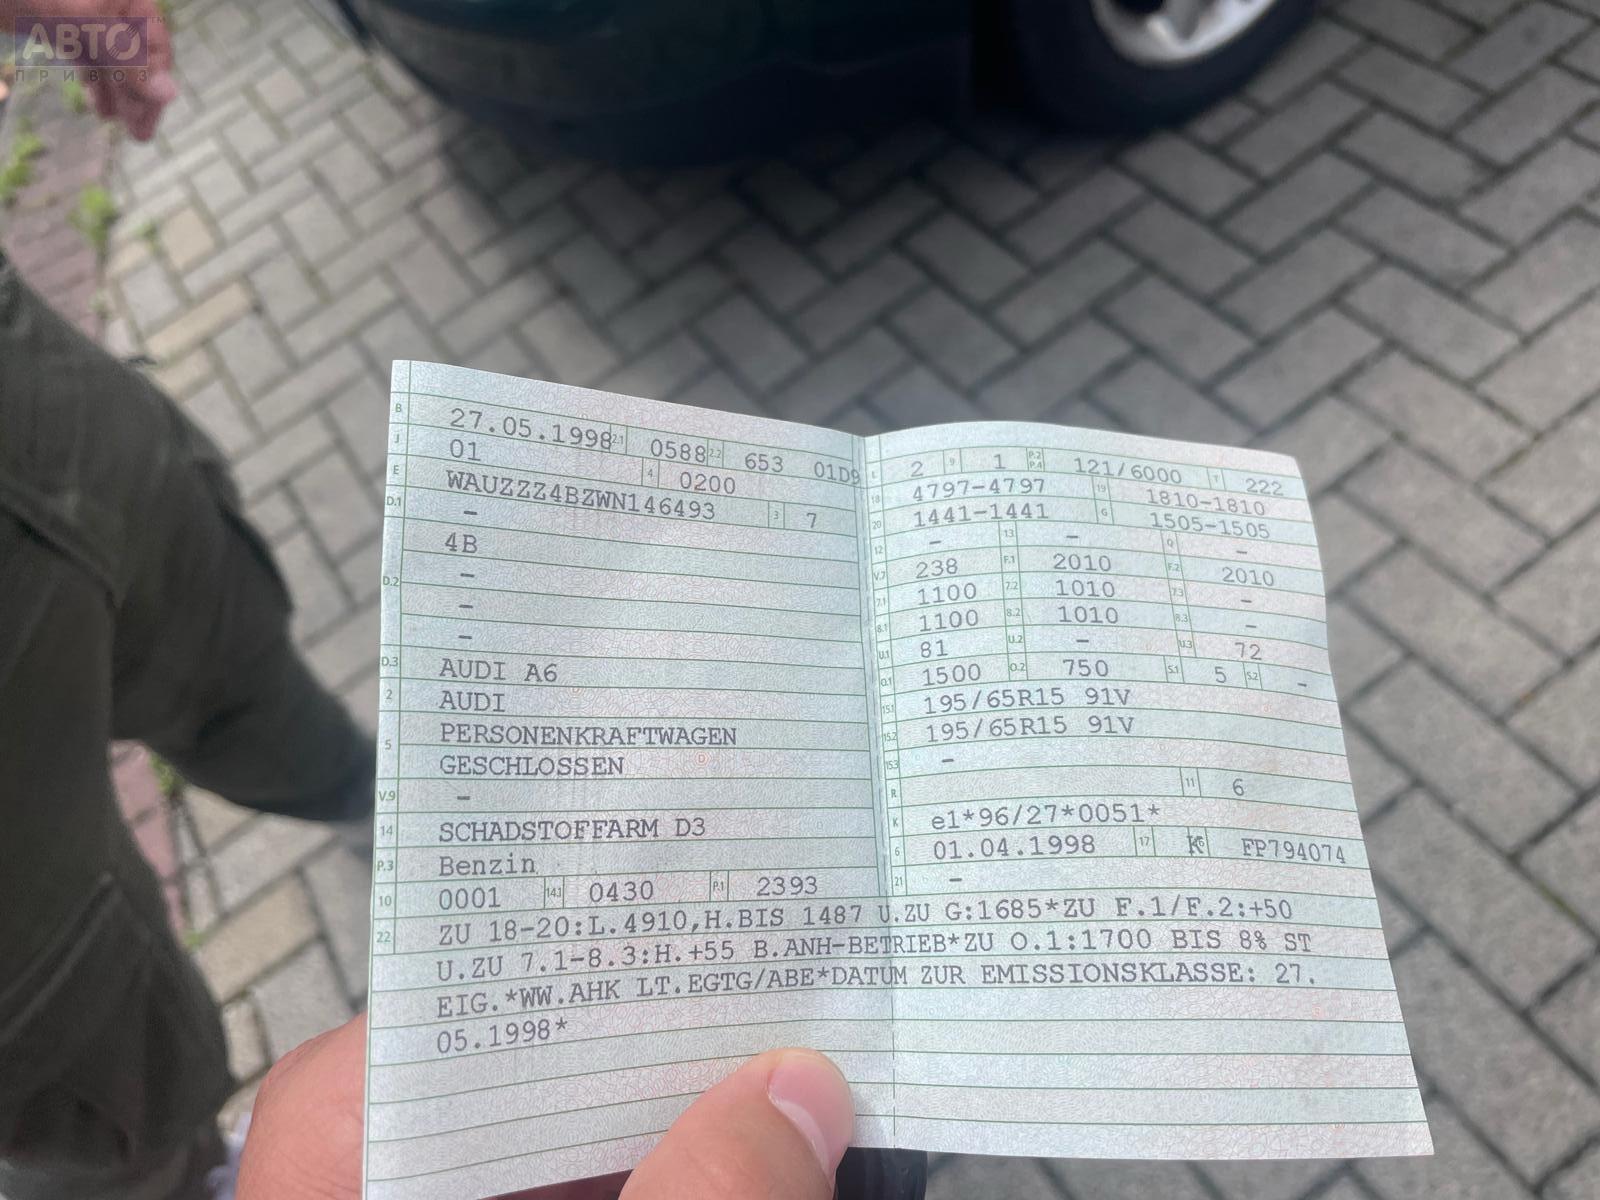 АВТО TM
ПРИВОЗ
B 27.05.1998 2.1 0588 2.2 653 01D9
J 01 4 0200
E WAUZZZ4BZWN146493 3 7
D.1 –
4B
D.2 –
–
–
D.3 AUDI A6
2 AUDI
5 PERSONENKRAFTWAGEN
GESCHLOSSEN
V.9 –
14 SCHADSTOFFARM D3
P.3 Benzin
10 0001 14.1 0430 P.1 2393
L 2 9 1 P.2 P.4 121/6000 T 222
18 4797–4797 19 1810–1810
20 1441–1441 G 1505–1505
12 – 13 – Q –
V.7 238 F.1 2010 F.2 2010
7.1 1100 7.2 1010 7.3 –
8.1 1100 8.2 1010 8.3 –
U.1 81 U.2 – U.3 72
O.1 1500 O.2 750 S.1 5 S.2 –
15.1 195/65R15 91V
15.2 195/65R15 91V
15.3 –
R 11 6
K e1*96/27*0051*
6 01.04.1998 17 K 16 FP794074
21 –
22 ZU 18-20:L.4910,H.BIS 1487 U.ZU G:1685*ZU F.1/F.2:+50
U.ZU 7.1-8.3:H.+55 B.ANH-BETRIEB*ZU O.1:1700 BIS 8% ST
EIG.*WW.AHK LT.EGTG/ABE*DATUM ZUR EMISSIONSKLASSE: 27.
05.1998*